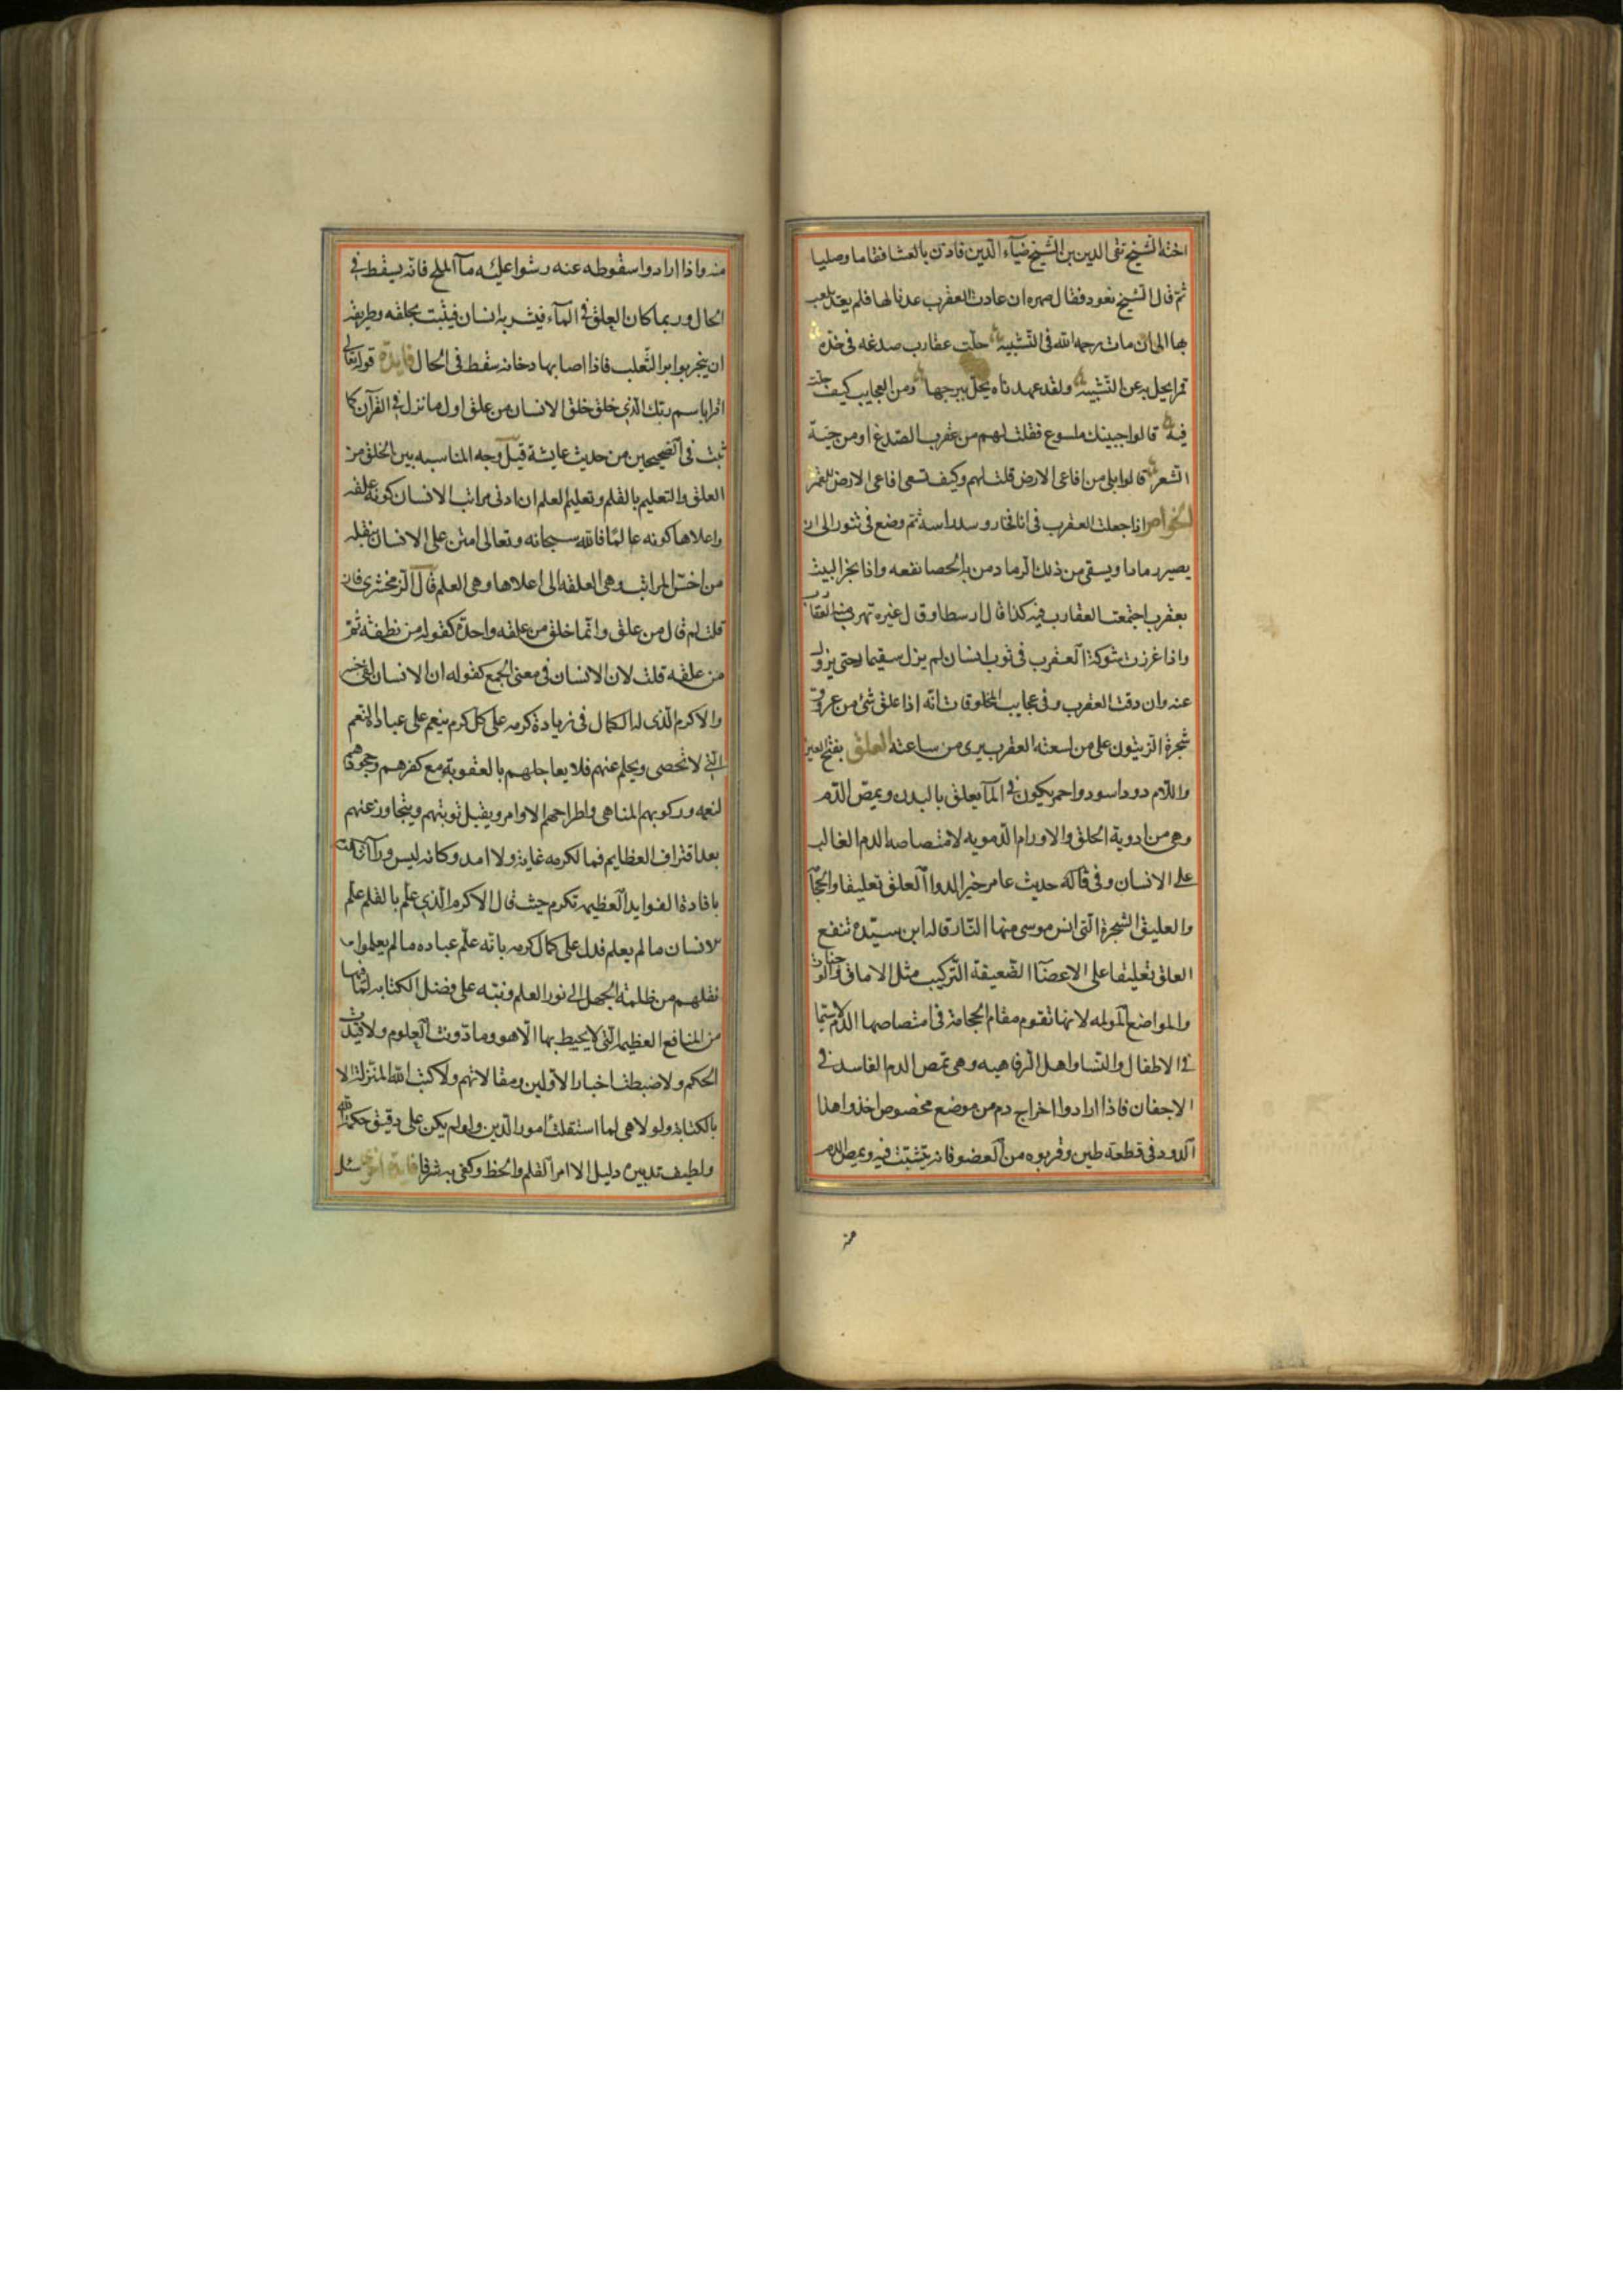 اخته الشيخ تقى الدين بن الشيخ ضيآء الدين فاذن بالعشا فقاما وصليا
ثم قال الشيخ نعود فقال صهره ان عادت العقرب عدنا لها فلم يعد يلعب
بها الى ان مات رحمه الله فى التشبيه حلت عقارب صدغه فى خده
قمرا يجل به عن التشبيه ولقد عهدناه يحل ببرجها ومن العجايب كيف حلت
فيه قالوا جبينك ملسوع فقلت لهم من عقرب الصدغ او من حية
الشعر قالوا بلى من افاعى الارض قلت لهم وكيف تسعى افاعى الارض للقمر
الخواص اذا جعلت العقرب فى انا فخار وسد راسه ثم وضع فى تنور الى ان
يصير رمادا ويسقى من ذلك الرماد من به الحصا نفعه واذا بخر البيت
بعقرب اجتمعت العقارب فيه كذا قال ارسطا وقال غيره تهرب منه العقارب
واذا غرزت شوكة العقرب فى ثوب انسان لم يزل سقيما حتى يزول
عنه وان دقت العقرب وفى عجايب المخلوقات انه اذا علق شئ من عروق
شجرة الزيتون على من لسعته العقرب برى من ساعته العلق بفتح العين
واللام دود اسود واحمر يكون فى المآ يعلق بالبدن ويمص الدم
وهى من ادوية الحلق والاورام الدمويه لامتصاصه الدم الغالب
على الانسان وفى حديث عامر خير الدوا العلق تعليقا والحجا
والعليق الشجرة التى انس موسى منها النار قاله ابن سيده تنفع
العلق تعليقا على الاعضآ الضعيفة التركيب مثل الاماق والوجنات
والمواضع المولمه لانها تقوم مقام الحجامة فى امتصاصها الدم لا سيما
فى الاطفال والنسا واهل الرفاهيه وهى تمص الدم الفاسد فى
الاجفان فاذا ارادوا اخراج دم من موضع مخصوص اخذوا هذا
الدود فى قطعة طين وقربوه من العضو فانه يتشبث فيه ويمص الدم
منه
منه واذا ارادوا سقوطه عنه رشوا عليه مآ الملح فانه يسقط فى
الحال وربما كان العلق فى المآء فيشربه انسان فيثبت بحلقه وطريقه
ان يتبخر بوبر الثعلب فاذا اصابها دخانه سقط فى الحال فايدة قوله تعالى
اقرا باسم ربك الذى خلق خلق الانسان من علق اول ما نزل فى القرآن كما
ثبت فى الصحيحين من حديث عايشة قيل وجه المناسبه بين الخلق من
العلق والتعليم بالقلم وتعليم العلم ان ادنى مراتب الانسان كونه علقه
واعلاها كونه عالما فالله سبحانه وتعالى امتن على الانسان بنقله
من اخس المراتب وهى العلقه الى اعلاها وهى العلم قال الزمخشرى فان
قلت لم قال من علق وانما خلق من علقه واحدة كقوله من نطفة ثم
من علقه قلت لان الانسان فى معنى الجمع كقوله ان الانسان لفى خسر
والاكرم الذى له الكمال فى زيادة كرمه على كل كرم ينعم على عباده النعم
التى لا تحصى ويحلم عنهم فلا يعاجلهم بالعقوبة مع كفرهم وجحودهم
لنعمه وركوبهم المناهى واطراحهم الاوامر ويقبل توبتهم ويتجاوز عنهم
بعد اقتراف العظايم فما لكرمه غاية ولا امد وكانه ليس ورآ التكرم
بافادة الفوايد العظيمه تكرم حيث قال الاكرم الذى علم بالقلم علم
الانسان ما لم يعلم فدل على كمال كرمه بانه علم عباده ما لم يعلموا
نقلهم من ظلمة الجهل الى نور العلم ونبه على فضل الكتابه لما فيها
من المنافع العظيمه التى لا يحيط بها الا هو وما دونت العلوم ولا قيدت
الحكم ولا ضبطت اخبار الاولين ومقالاتهم ولا كتب الله المنزلة الا
بالكتابة ولولا هى لما استقلت امور الدين ولو لم يكن على دقيق حكمة الله
ولطيف تدبيره دليل الا امر القلم والخط وكفى به شرفا فايدة اخرى سئل